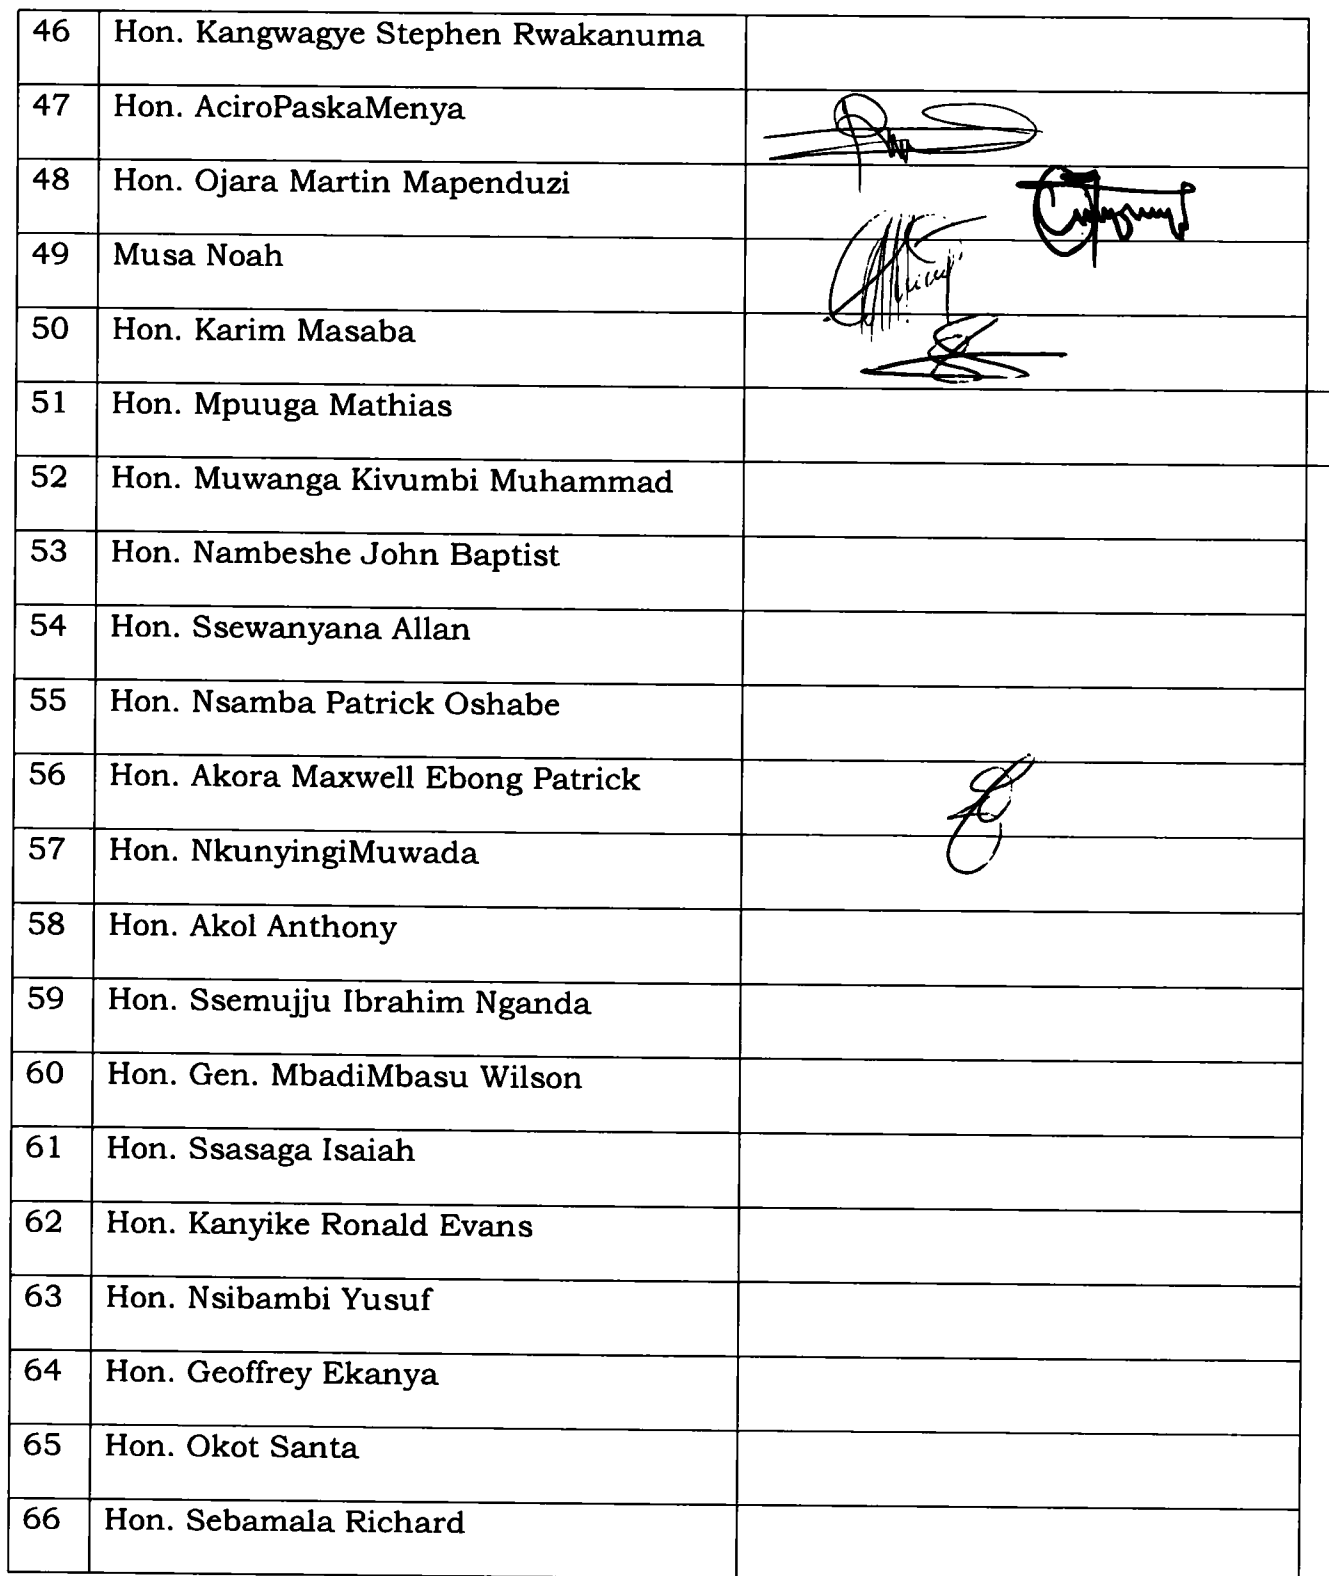 46 Hon. Kangwagye Stephen Rwakanuma
47 Hon. AciroPaskaMenya
48 Hon. Ojara Martin Mapenduzi
49 Musa Noah
50 Hon. Karim Masaba
51 Hon. Mpuuga Mathias
52 Hon. Muwanga Kivumbi Muhammad
53 Hon. Nambeshe John Baptist
54 Hon. Ssewanyana Allan
55 Hon. Nsamba Patrick Oshabe
56 Hon. Akora Maxwell Ebong Patrick
57 Hon. NkunyingiMuwada
58 Hon. Akol Anthony
59 Hon. Ssemujju Ibrahim Nganda
60 Hon. Gen. MbadiMbasu Wilson
61 Hon. Ssasaga Isaiah
62 Hon. Kanyike Ronald Evans
63 Hon. Nsibambi Yusuf
64 Hon. Geoffrey Ekanya
65 Hon. Okot Santa
66 Hon. Sebamala Richard